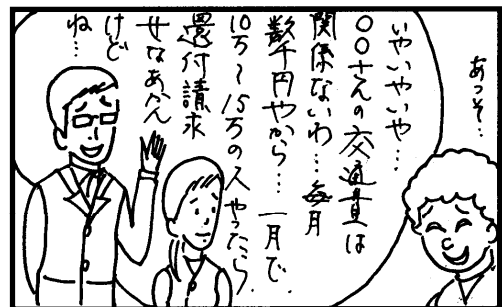 あっそ…
いやいやいや…
〇〇さんの交通費は
関係ないわ…毎月
数千円やから…一月で
10万～15万の人やったら
還付請求
せなあかん
けど
ね…